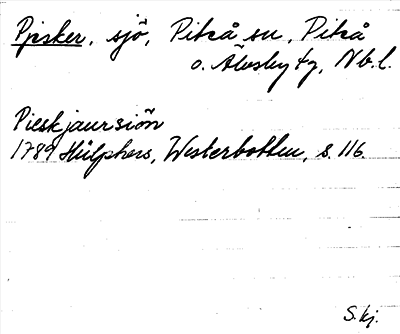 Pjesker, sjö, Piteå sn, Piteå
o. Älvsby tg, Nb.l.
Pieskjaursiön
1789 Hülphers, Westerbotten, s. 116.
S.kj.